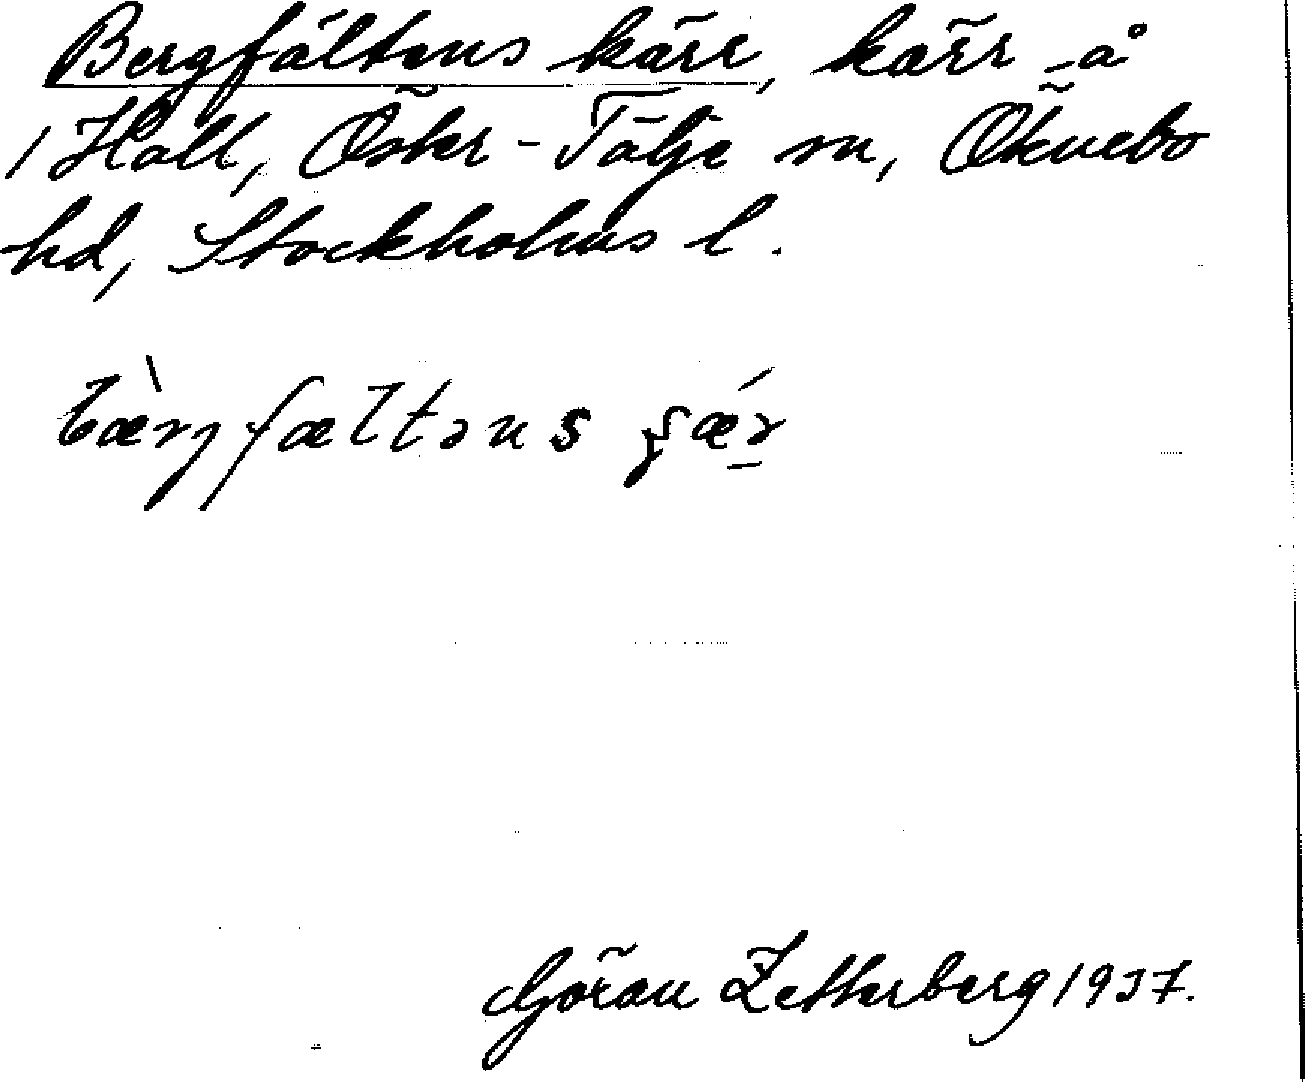 Bergfältens kärr, kärr å
Hall, Öster-Tälje sn, Öknebo
hd, Stockholms l.
Göran Zetterberg 1937.